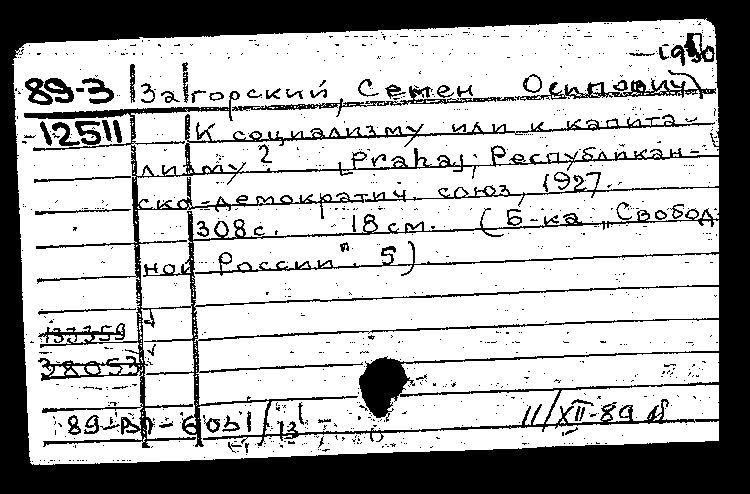 89-3 Загорский, Семен Осипович
-12511 К социализму или к капита-
лизму? [Praha], Республикан-
ско-демократич. союз, 1927.
308 с. 18 см. (Б-ка „Свобод
ной России". 5)
133359
38053
11/XII-89